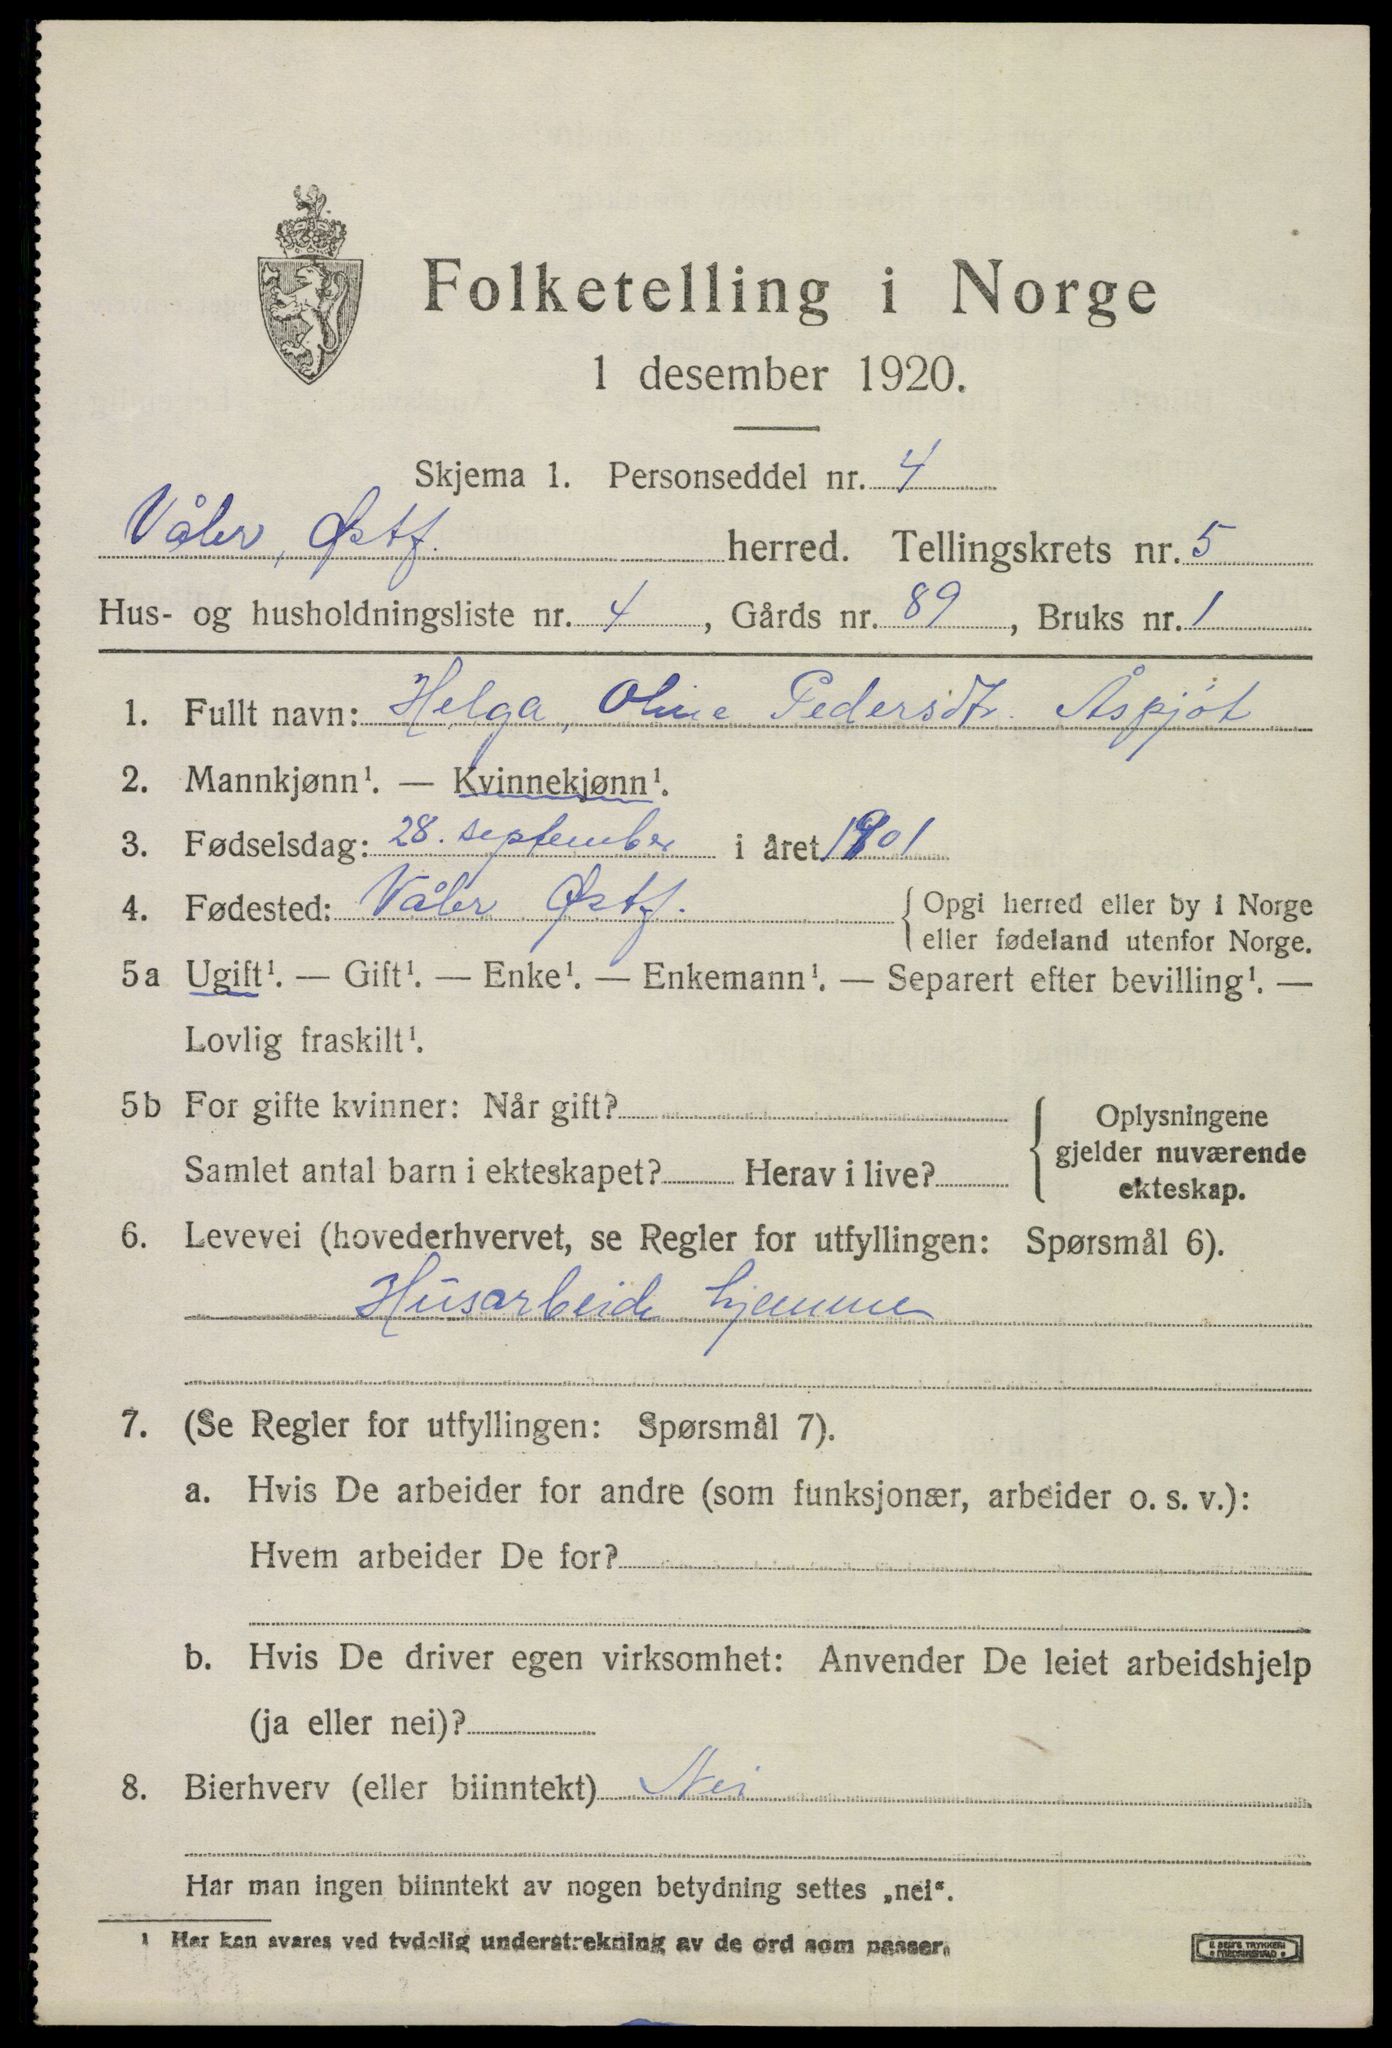 Folketelling i Norge
1 desember 1920.
Skjema 1. Personseddel nr. 4
Våler, Østf. herred. Tellingskrets nr. 5
Hus- og husholdningsliste nr. 4, Gårds nr. 89, Bruks nr. 1
1. Fullt navn: Helga, Oline Pedersdtr. Åspjøt
2. Mannkjønn¹. — Kvinnekjønn¹.
3. Fødselsdag: 28. september i året 1901
4. Fødested: Våler Østf. { Opgi herred eller by i Norge
eller fødeland utenfor Norge.
5a Ugift¹. — Gift¹. — Enke¹. — Enkemann¹. — Separert efter bevilling¹. —
Lovlig fraskilt¹.
5b For gifte kvinner: Når gift?
Samlet antal barn i ekteskapet? Herav i live?
{ Oplysningene
gjelder nuværende
ekteskap.
6. Levevei (hovederhvervet, se Regler for utfyllingen: Spørsmål 6).
Husarbeide hjemme
7. (Se Regler for utfyllingen: Spørsmål 7).
a. Hvis De arbeider for andre (som funksjonær, arbeider o. s. v.):
Hvem arbeider De for?
b. Hvis De driver egen virksomhet: Anvender De leiet arbeidshjelp
(ja eller nei)?
8. Bierhverv (eller biinntekt) Nei
Har man ingen biinntekt av nogen betydning settes „nei“.
1 Her kan svares ved tydelig understrekning av de ord som passer.
TRYKKERI
FREDRIKSTAD